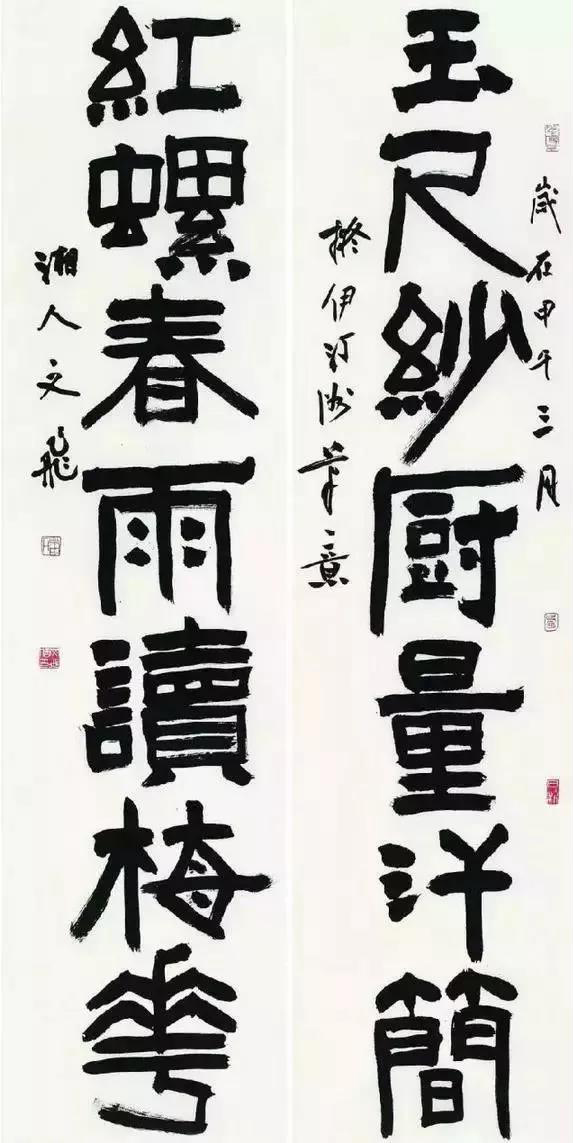 歲在甲午三月
玉尺紗厨量汗簡
伊汀洲筆意
紅螺春雨讀梅花
湘人文